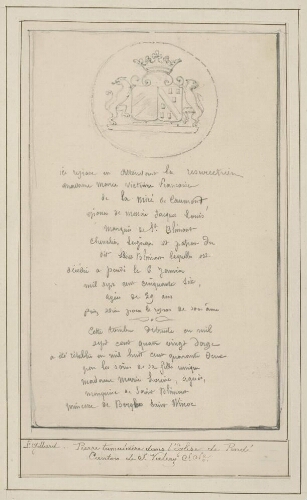 ici repose en attendant la résurrection
madame marie victoire françoise
de la Miré de Caumont
épouse de messire Jacques Louis
marquis de St. Blimont
chevalier seigneur et patron du
dit St. Blimont laquelle est
décédée a paris le 8 janvier
mil sept cent cinquante six,
agée de 29 ans
priez dieu pour le repos de son âme
Cette tombe détruite en mil
sept cent quatre vingt treize
a été rétablie en mil huit cent quarante deux
par les soins de sa fille unique
madame marie Louise
marquise de Saint Blimont
princesse de Berghes Saint Winoc
Pierre tumulaire dans l'église de Pendé
Canton de St. Valery